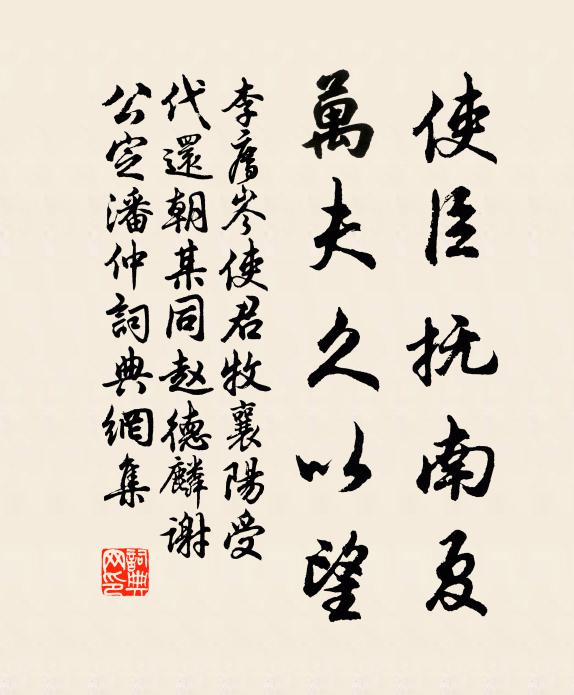 使臣抚南夏
萬夫久以望
李廌岑使君牧襄陽受
代還朝某同赵德麟谢
公定潘仲詞典網集
詞典网印